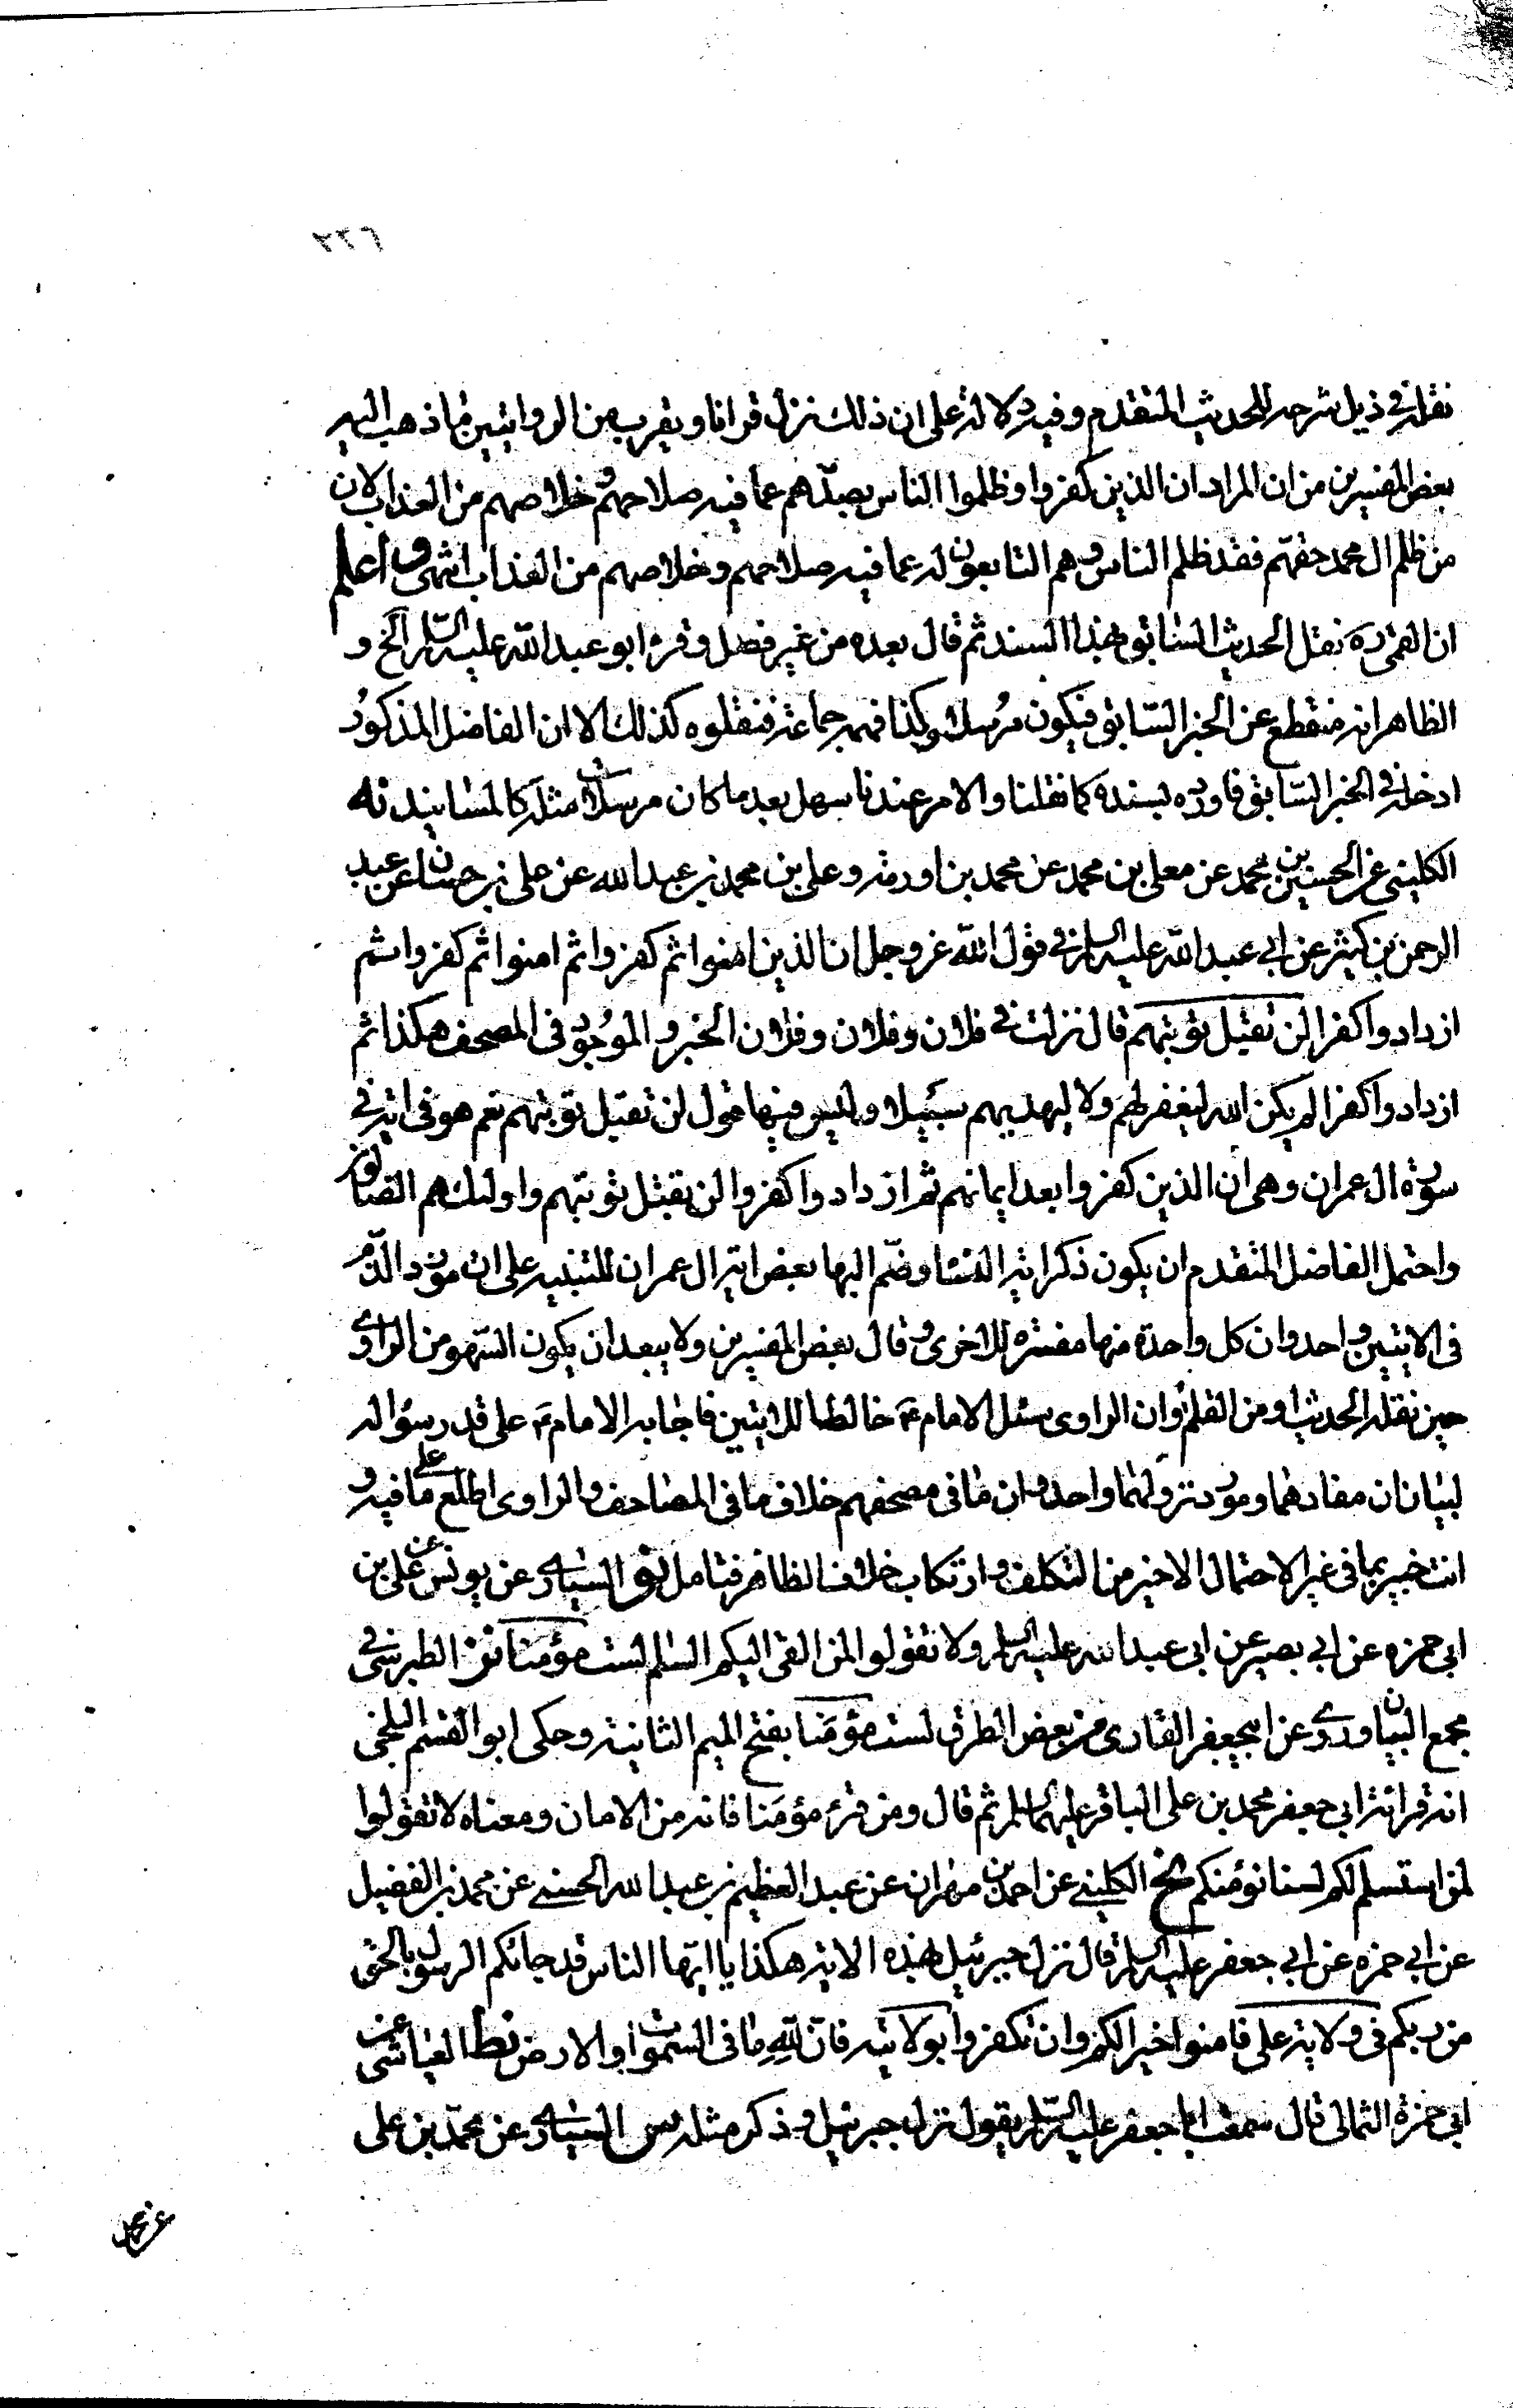 ٢٢٦
نقله في ذيل شرحه للحديث المتقدم وفيه دلالة على ان ذلك نزل قرانا ويقرب من الروايتين ما ذهب اليه
بعض المفسرين من ان المراد ان الذين كفروا وظلموا الناس بصدهم عما فيه صلاحهم وخلاصهم من العذاب لان
من ظلم ال محمد حقهم فقد ظلم الناس وهم التابعون له عما فيه صلاحهم وخلاصهم من العذاب انتهى واعلم
ان القمي ره نقل الحديث السابق بهذا السند ثم قال بعده من غير فصل وقرء ابو عبد الله عليه السلم الخ و
الظاهر انه منقطع عن الخبر السابق فيكون مرسلا وكذا فهمه جماعة فنقلوه كذلك الا ان الفاضل المذكور
ادخله في الخبر السابق فاورده بسنده كما نقلنا والامر عندنا سهل بعد ما كان مرسلات مثله كالمسانيد نه
الكليني عن الحسين بن محمد عن معلى بن محمد عن محمد بن اورمة وعلى بن محمد بن عبد الله عن على بن حسان عن عبد
الرحمن بن كثير عن ابي عبد الله عليه السلم في قول الله عز وجل ان الذين امنوا ثم كفروا ثم امنوا ثم كفروا ثم
ازدادوا كفرا لن تقبل توبتهم قال نزلت في فلان وفلان وفلان الخبر والموجود في المصحف هكذا ثم
ازدادوا كفرا لم يكن الله ليغفر لهم ولا ليهديهم سبيلا وليس فيها قول لن تقبل توبتهم نعم هو في اية في
سورة ال عمران وهى ان الذين كفروا بعد ايمانهم ثم ازدادوا كفروا لن يقبل توبتهم واولئك هم الضالون
واحتمل الفاضل المتقدم ان يكون ذكر اية النساء وضم اليها بعض اية ال عمران للتنبيه على ان مورد الذم
في الايتين واحد وان كل واحدة منها مفسره للاخرى وقال بعض المفسرين ولا يبعد ان يكون السهو من الراوي
حين نقله الحديث او من القلم او ان الراوى سئل الامام ع خالطا للايتين فاجابه الامام ع على قدر سؤاله
لبيان ان مفادهما ومورد نزولهما واحد وان ما في مصحفهم خلاف ما في المصاحف والراوى اطلع على ما فيه و
انت خبير بما في غير الاحتمال الاخير من التكلف وارتكاب خلاف الظاهر فتامل نو السياري عن يونس عن علي بن
ابي حمزه عن ابي بصير عن ابى عبد الله عليه السلم ولا تقولوا لمن القى اليكم السلم لست مؤمنا نز الطبرسي في
مجمع البيان وروي عن ابيجعفر القارى من بعض الطرق لست مؤمنا بفتح الميم الثانية وحكى ابو القسم البلخي
انه قرائة ابي جعفر محمد بن على الباقر عليهما السلم ثم قال ومن قرء مؤمنا فانه من الامان ومعناه لا تقولوا
لمن استسلم لكم لسنا نؤمنكم نح الكليني عن احمد بن مهران عن عبد العظيم بن عبد الله الحسني عن محمد بن الفضيل
عن ابي حمزه عن ابي جعفر عليه السلم قال نزل جبرئيل بهذه الاية هكذا يا ايها الناس قد جائكم الرسول بالحق
من ربكم في ولاية على فامنوا خيرا لكم وان تكفروا بولايته فان لله ما في السموات والارض نط العياشي عن
ابي حمزة الثمالى قال سمعت ابا جعفر عليه السلم يقول نزل جبرئيل وذكر مثله س السياري عن محمد بن على
عن محمد